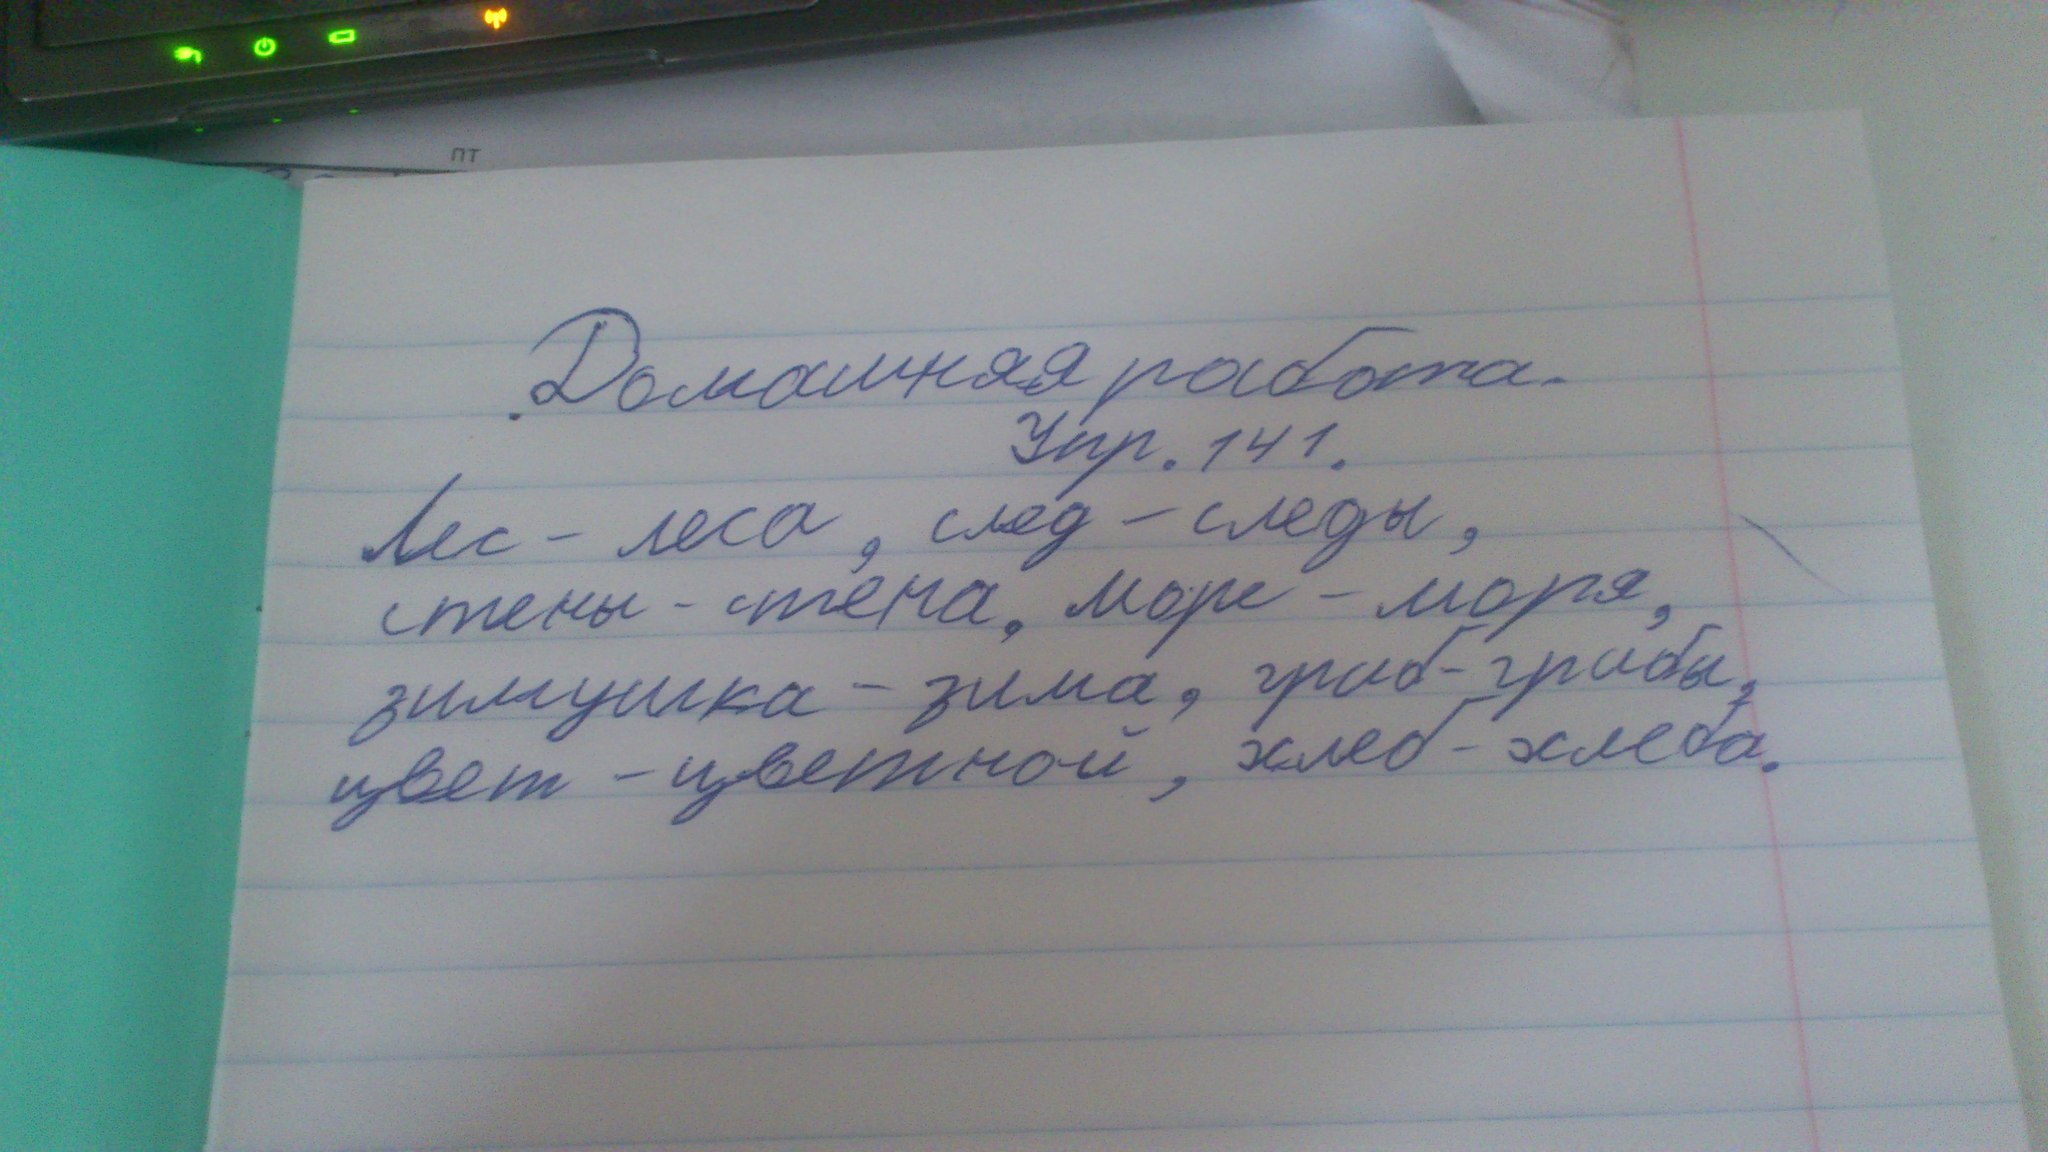 пт
Домашняя работа.
Упр. 141.
Лес - леса, след - следы,
стены - стена, море - моря,
зимушка - зима, гриб - грибы,
цвет - цветной, хлеб - хлеба.